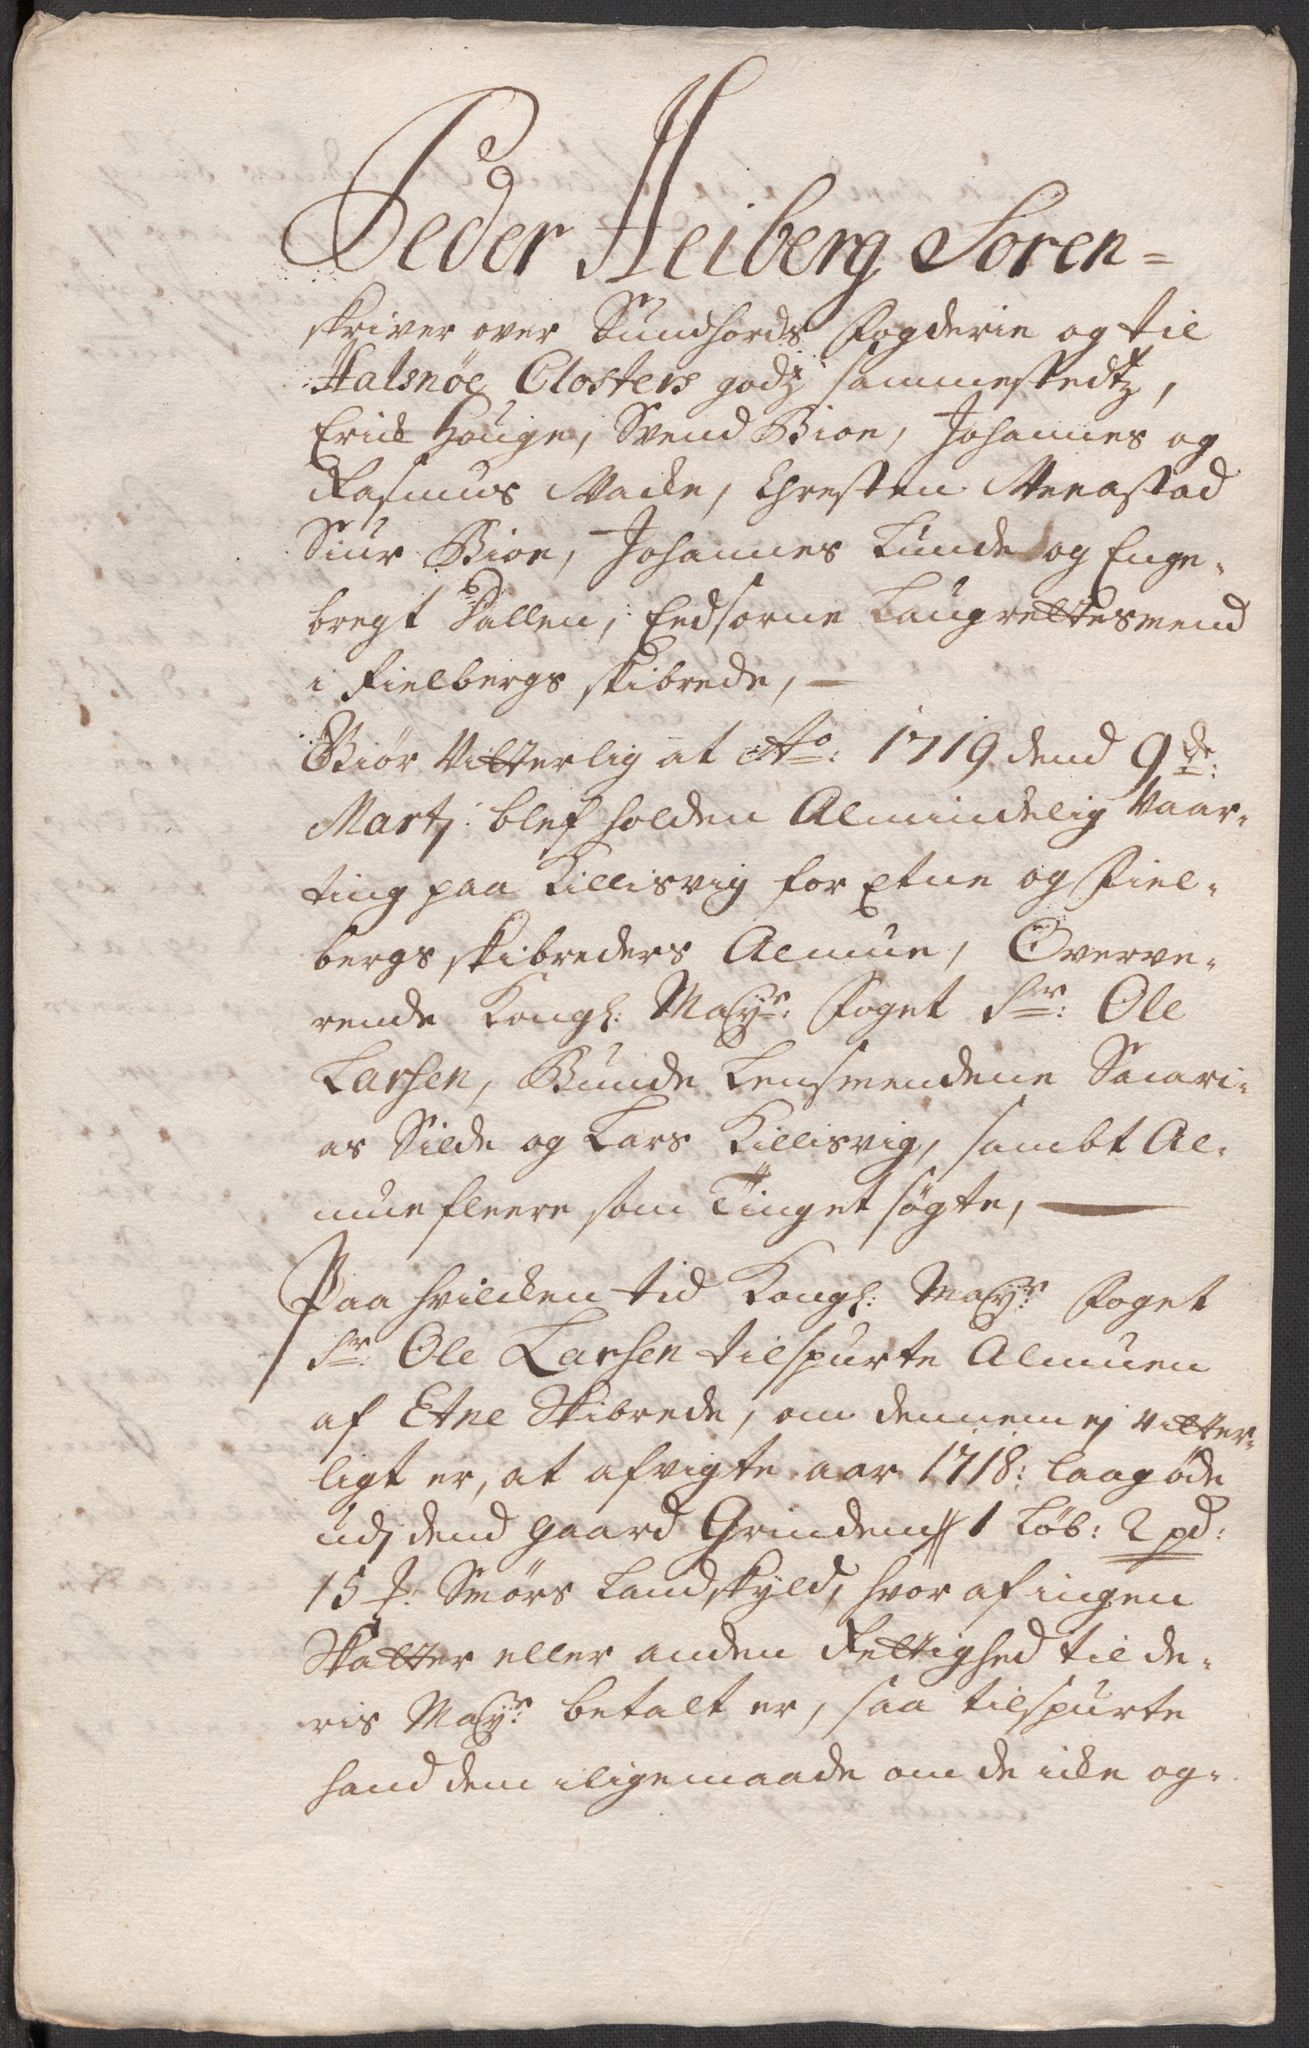 Peder Heiberg Soren=
skriver over Sundhords Fogderie og til
Halsnöe Closters godz sammestedtz,
Erick Houge, Svend Bioe, Johannes og
Rasmus Wacke, Christen Meenstad
Siur Bioe, Johannes Lunde og Enge-
bregt Dallen, Eedsorne Laugrettesmend
i Fielbergs skibrede, —
Giör Vitterlig at Ao: 1719 dend 9de:
Martj: blef holden Almindelig Vaar-
ting paa Killisvig for Etne og Fiel-
bergs skibreders Almue, Overve-
rende Kongl: Mayts: Foget Sr: Ole
Larsen, Bunde Lensmendene Sacari-
as Silde og Lars Killisvig, sambt Al-
mue fleere som Tinget sögte, —
Paa hvilcken tid Kongl: Mayts: Foget
Sr: Ole Larsen tilspurte Almuen
af Etne Skibrede, om dennem ej vitter-
ligt er, at afvigte aar 1718: laag öde
udj dend gaard Grinden 1 Löb: 2 pd:
15 #: Smörs Landskyld, hvor af ingen
Skatter eller anden Rettighed til de-
ris Mayts: betalt er, saa tilspurte
hand dem iligemaade om de icke og-